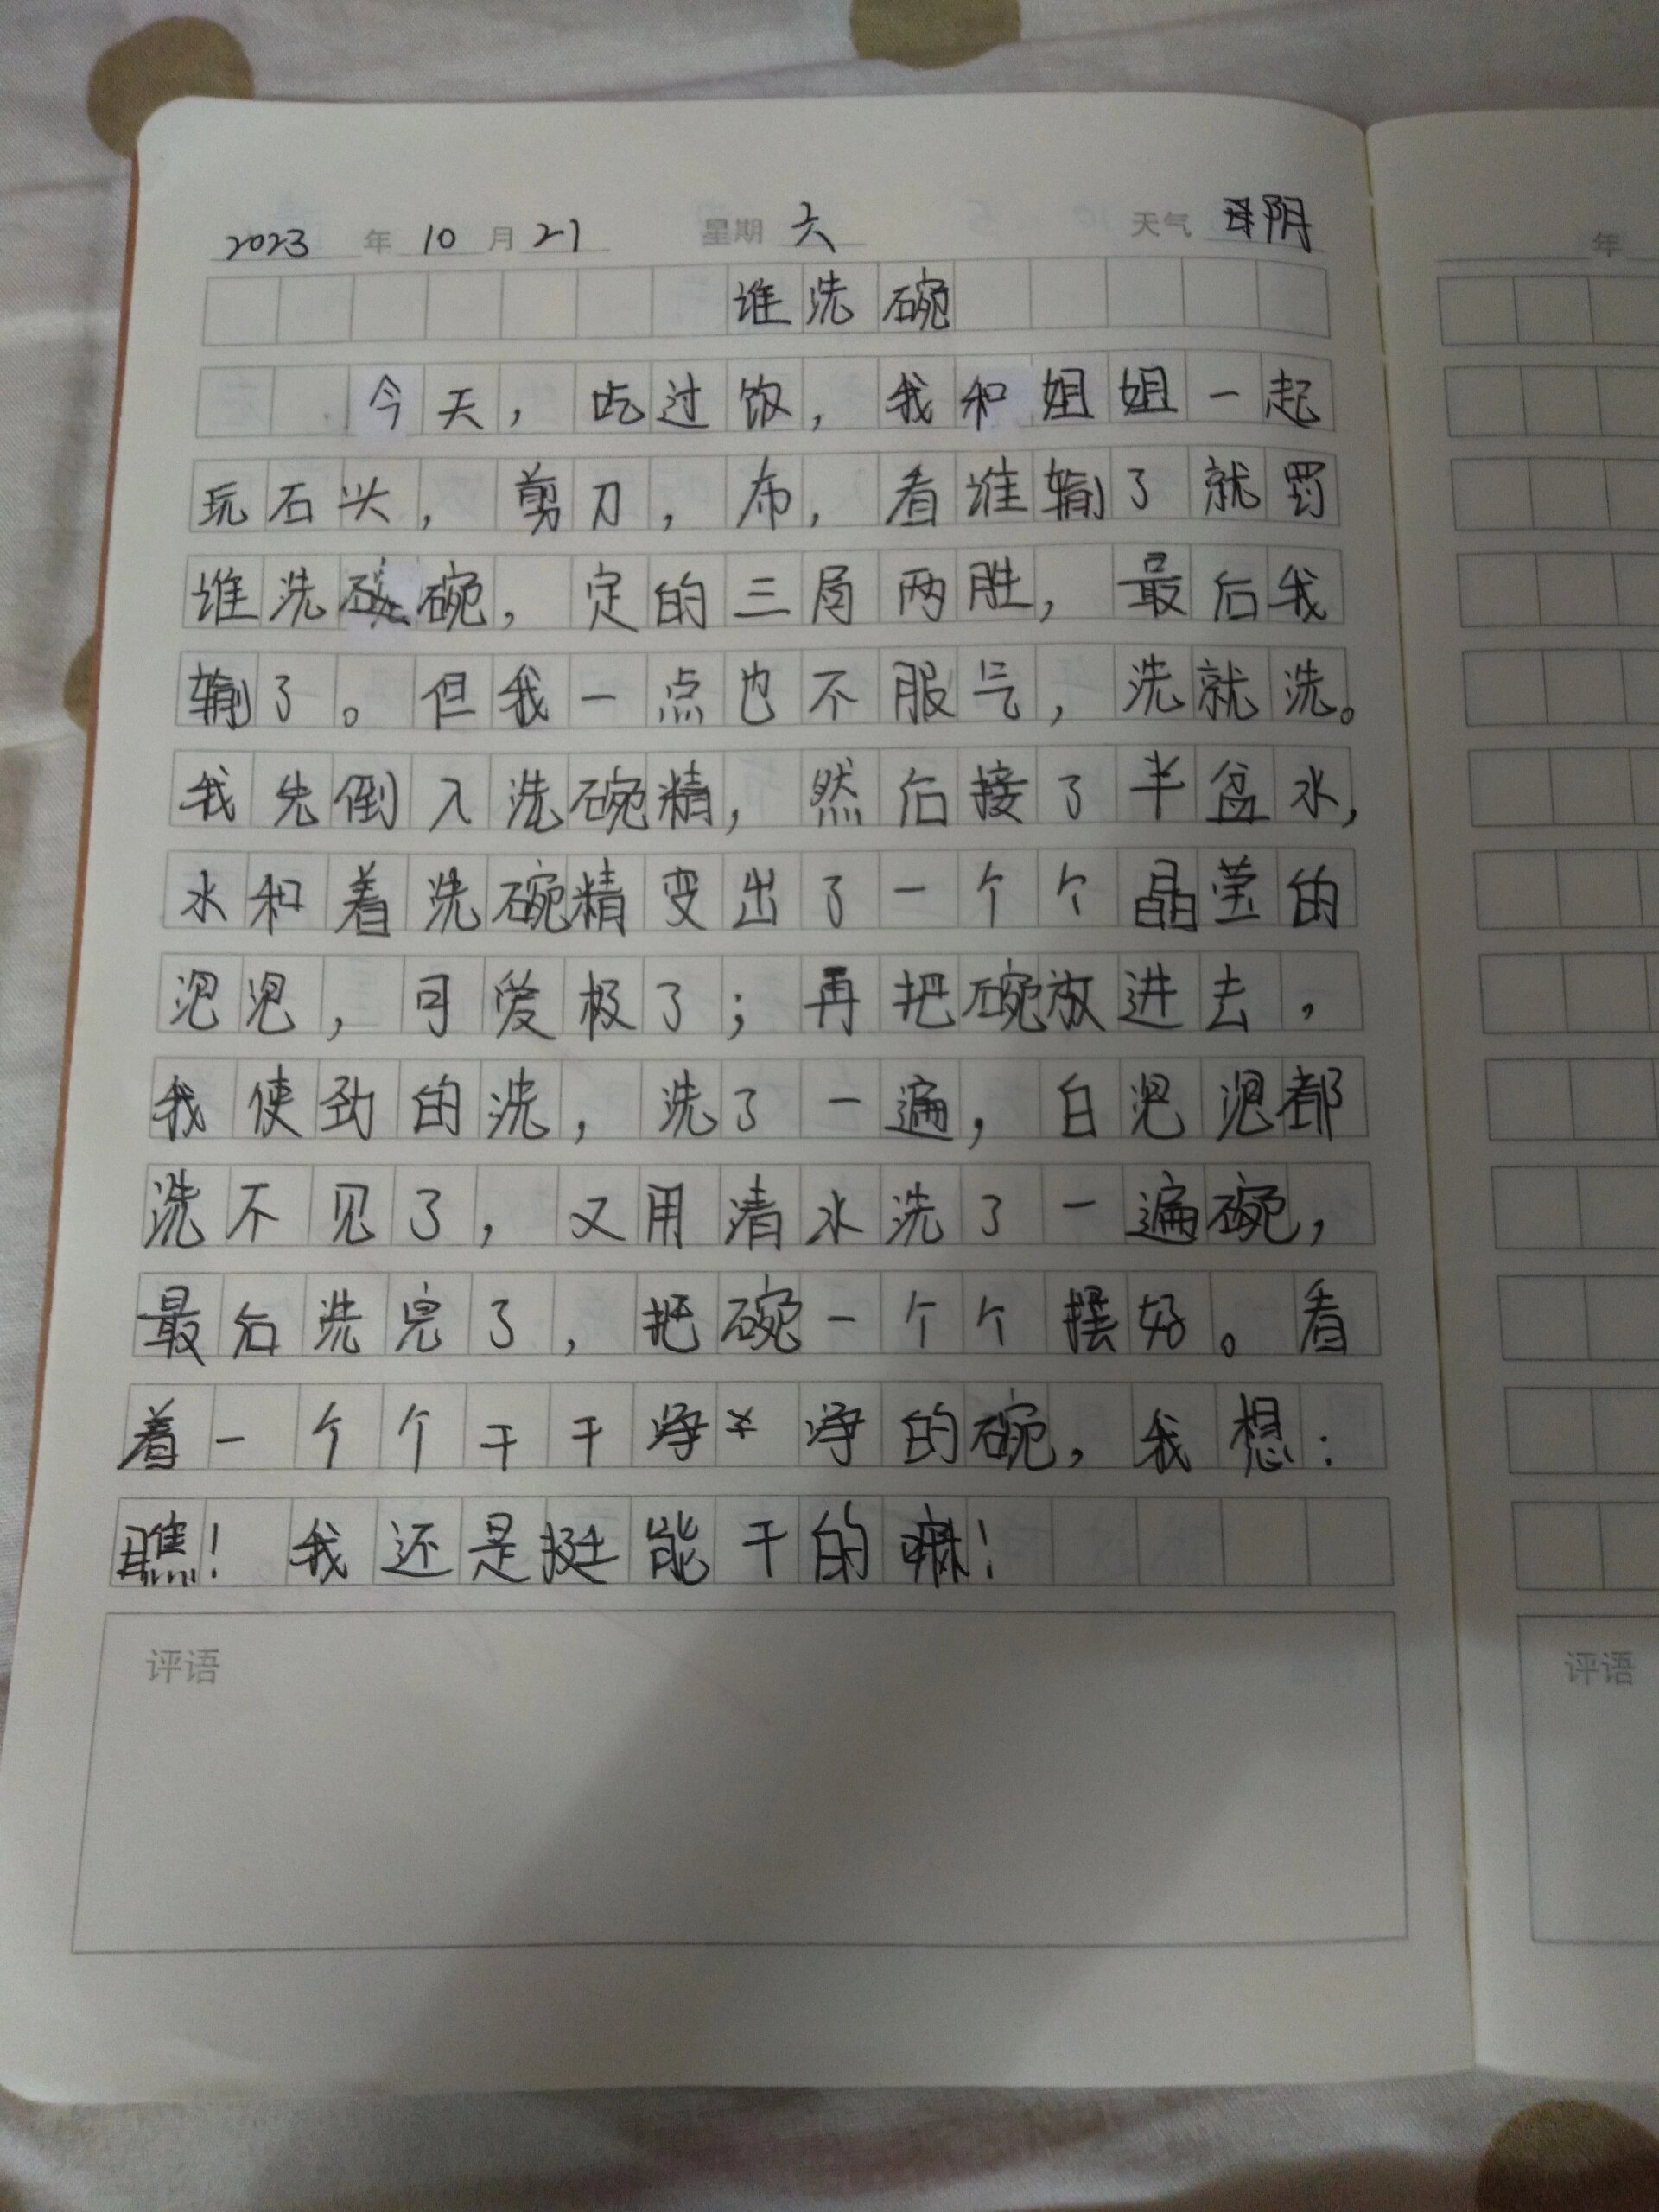 2023 年 10 月 21 星期 六 天气 阴
谁洗碗
今天，吃过饭，我和姐姐一起
玩石头，剪刀，布，看谁输了就罚
谁洗碗，定的三局两胜，最后我
输了。但我一点也不服气，洗就洗。
我先倒入洗碗精，然后接了半盆水，
水和着洗碗精变出了一个个晶莹的
泡泡，可爱极了；再把碗放进去，
我使劲的洗，洗了一遍，白泡泡都
洗不见了，又用清水洗了一遍碗，
最后洗完了，把碗一个个摆好。看
着一个个干干净净的碗，我想：
瞧！我还是挺能干的嘛！
评语
年
评语